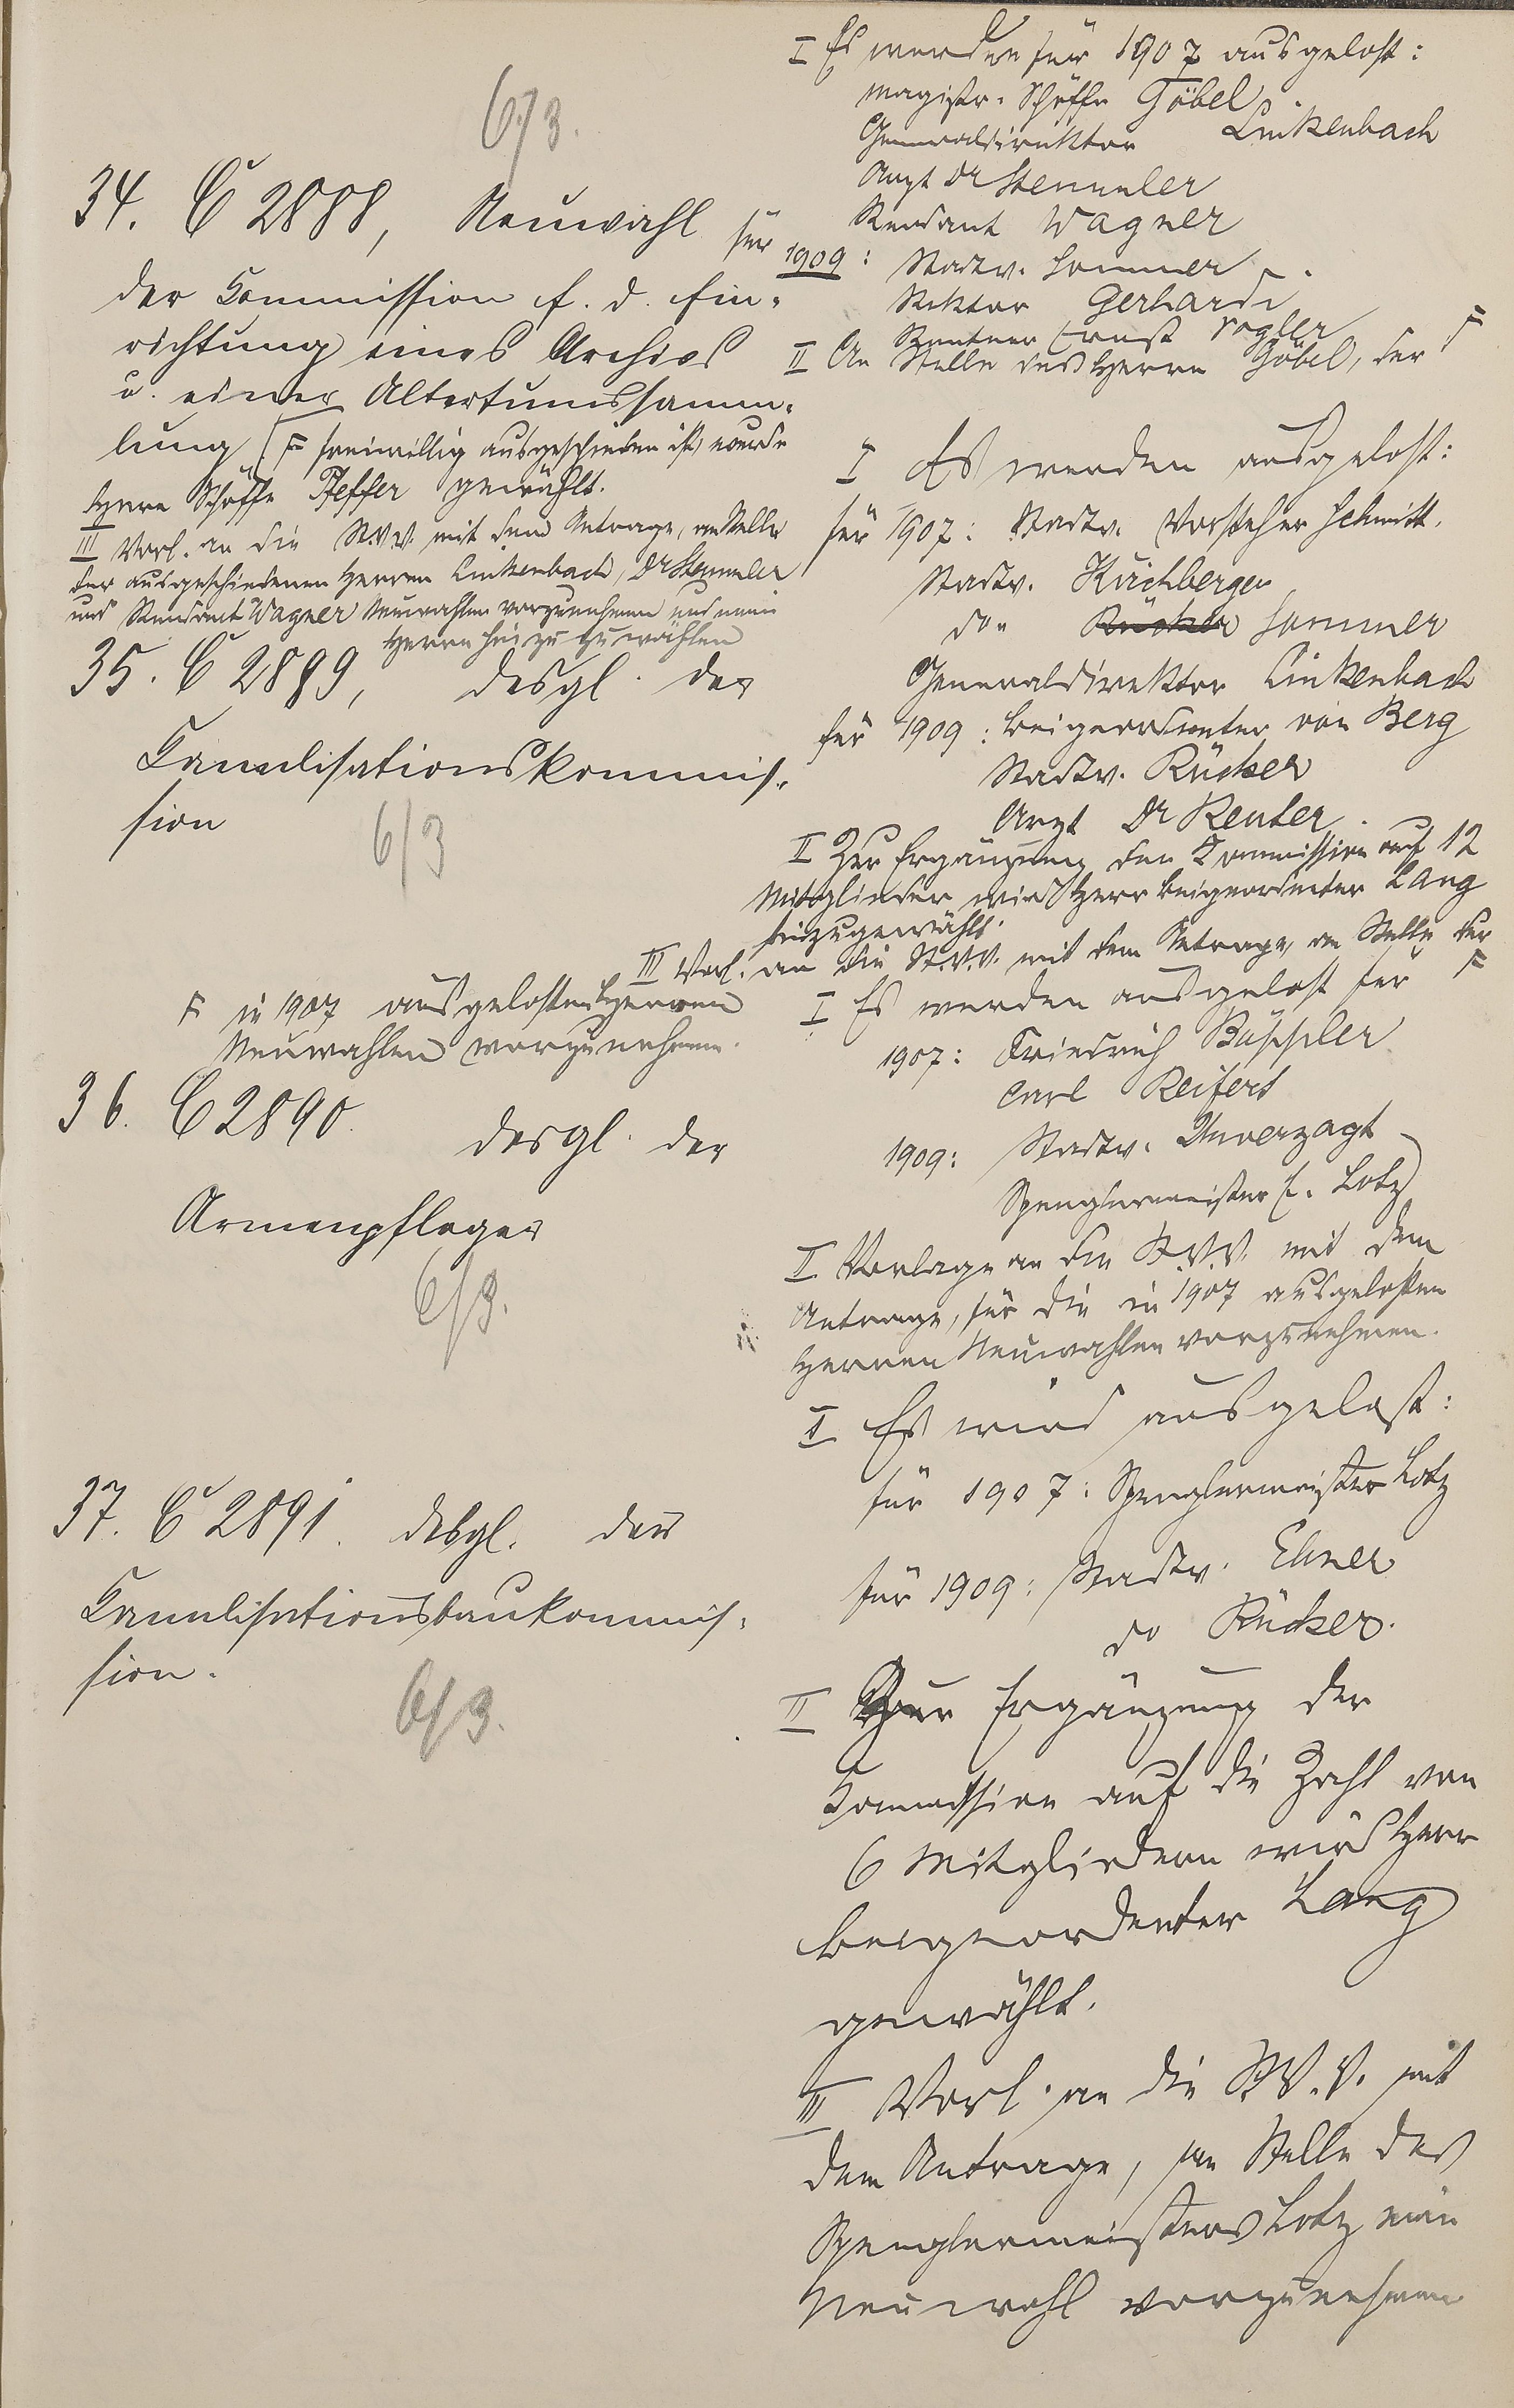 6/3.
34. C 2888, Neuwahl
der Commission f. d. Ein-
richtung eines Archivs
u. einer Altertumssamm-
lung
I Es werden für 1907 ausgelost:
Magistr. Schöffe Göbel
Generaldirektor Linkenbach
Arzt Dr Stemmler
Rendant Wagner
für 1909: Stadtv. Sommer
Rektor Gerhardi
Rentner Ernst Vogler
II An Stelle des Herrn Göbel, der F
F freiwillig ausgeschieden ist, wurde
Herr Schöffe Pfeffer gewählt.
III Vorl. an die St.V.V. mit dem Antrage, an Stelle
der ausgeschiedenen Herren Linkenbach, Dr Stemmler
und Rendant Wagner Neuwahlen vorzunehmen und einen
Herrn hinzu zu wählen
35. C 2889, desgl. der
Canalisationskommis-
sion
6/3
I Es werden ausgelost:
für 1907: Stadtv. Vorsteher Schmitt.
Stadtv. Kirchberger
do Rücker Sommer
Generaldirektor Linkenbach
für 1909: Beigeordneter von Berg
Stadtv. Rücker
Arzt Dr Reuter.
II Zur Ergänzung der Commission auf 12
Mitglieder wird Herr Beigeordneter Lang
hinzugewählt.
III Vorl. an die St.V.V. mit dem Antrage, an Stelle der F
F in 1907 ausgelosten Herren
Neuwahlen vorzunehmen.
36. C 2890. desgl. der
Armenpfleger
6/3.
I Es werden ausgelost für
1907: Friedrich Bäppler
Carl Reifert
1909: Stadtv. Unverzagt
Spenglermeister C. Lotz
II Vorlage an die St.V.V. mit dem
Antrage, für die in 1907 ausgelosten
Herren Neuwahlen vorzunehmen.
37. C 2891. desgl. der
Canalisationsbaukommis-
sion.
6/3.
I Es wird ausgelost:
für 1907: Spenglermeister Lotz
für 1909: Stadtv. Ebner
do Rücker.
II Zur Ergänzung der
Commission auf die Zahl von
6 Mitgliedern wird Herr
Beigeordneter Lang
gewählt.
III Vorl. an die St.V.V. mit
dem Antrage, an Stelle des
Spenglermeisters Lotz eine
Neuwahl vorzunehmen